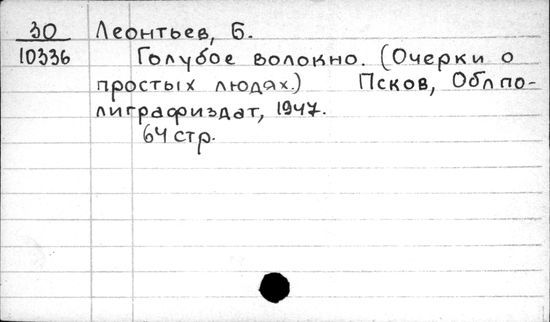 30 Леонтьев, Б.
10336 Голубое волокно. (Очерки о
простых людях.) Псков, Облпо-
лиграфиздат, 1947.
64 стр.